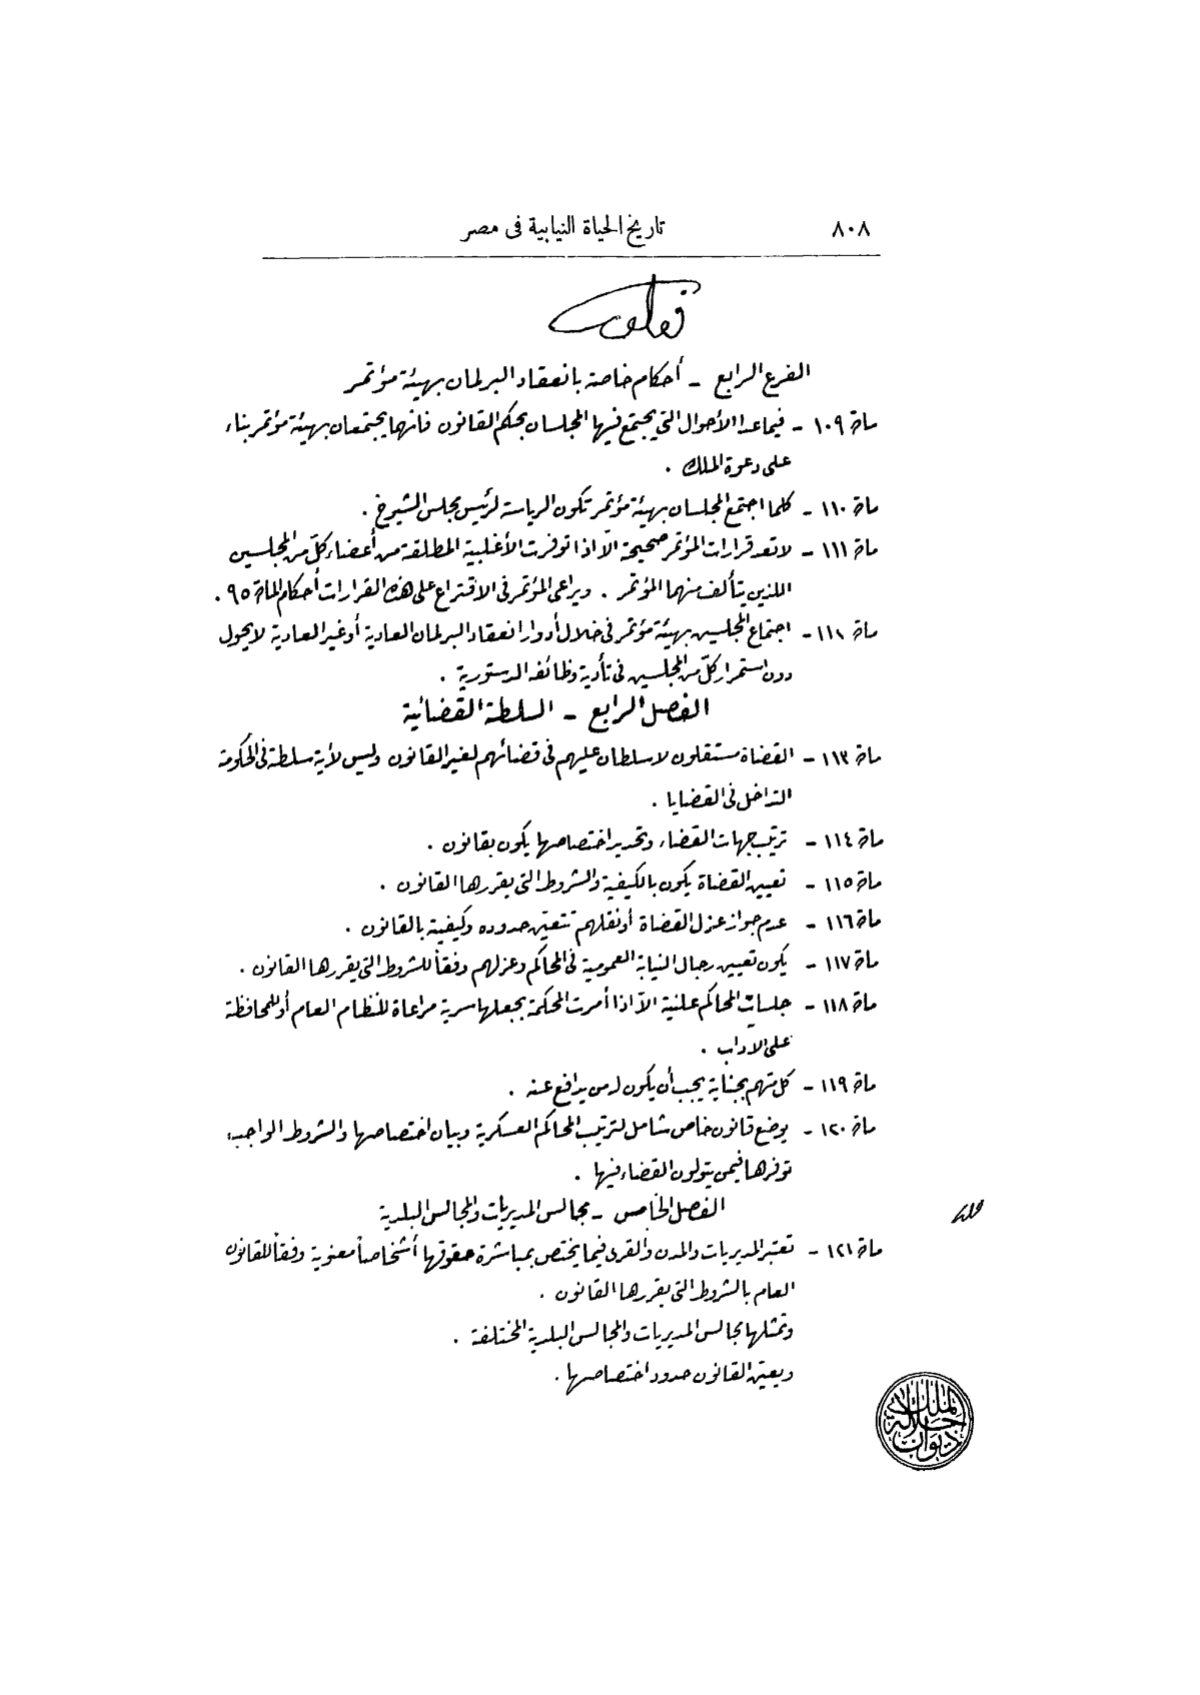 ٨٠٨
تاريخ الحياة النيابية فى مصر
الفرع الرابع - أحكام خاصة بانعقاد البرلمان بهيئة مؤتمر
مادة ١٠٩ - فيما عدا الأحوال التى يجتمع فيها المجلسان بحكم القانون فانهما يجتمعان بهيئة مؤتمر بناء
على دعوة الملك .
مادة ١١٠ - كلما اجتمع المجلسان بهيئة مؤتمر تكون الرياسة لرئيس مجلس الشيوخ .
مادة ١١١ - لا تعد قرارات المؤتمر صحيحة الّا اذا توفرت الأغلبية المطلقة من أعضاء كلّ من المجلسين
اللذين يتألف منهما المؤتمر . ويراعى المؤتمر فى الاقتراع على هذه القرارات أحكام المادة ٩٥ .
مادة ١١٢ - اجتماع المجلسين بهيئة مؤتمر فى خلال أدوار انعقاد البرلمان العادية أو غير العادية لا يحول
دون استمرار كلّ من المجلسين فى تأدية وظائفه الدستورية .
الفصل الرابع - السلطة القضائية
مادة ١١٣ - القضاة مستقلون لا سلطان عليهم فى قضائهم لغير القانون وليس لأية سلطة فى الحكومة
التداخل فى القضايا .
مادة ١١٤ - ترتيب جهات القضاء وتحديد اختصاصها يكون بقانون .
مادة ١١٥ - تعيين القضاة يكون بالكيفية والشروط التى يقررها القانون .
مادة ١١٦ - عدم جواز عزل القضاة أو نقلهم تتعين حدوده وكيفيته بالقانون .
مادة ١١٧ - يكون تعيين رجال النيابة العمومية فى المحاكم وعزلهم وفقاً للشروط التى يقررها القانون .
مادة ١١٨ - جلسات المحاكم علنية الّا اذا أمرت المحكمة بجعلها سرية مراعاة للنظام العام أو للمحافظة
على الآداب .
مادة ١١٩ - كل متهم بجناية يجب أن يكون له من يدافع عنه .
مادة ١٢٠ - يوضع قانون خاص شامل لترتيب المحاكم العسكرية وبيان اختصاصها والشروط الواجب
توفرها فيمن يتولون القضاء فيها .
الفصل الخامس - مجالس المديريات والمجالس البلدية
مادة ١٢١ - تعتبر المديريات والمدن والقرى فيما يختص بمباشرة حقوقها أشخاصاً معنوية وفقاً للقانون
العام بالشروط التى يقررها القانون .
وتمثلها مجالس المديريات والمجالس البلدية المختلفة .
ويعيّن القانون حدود اختصاصها .
ديوان جلالة الملك